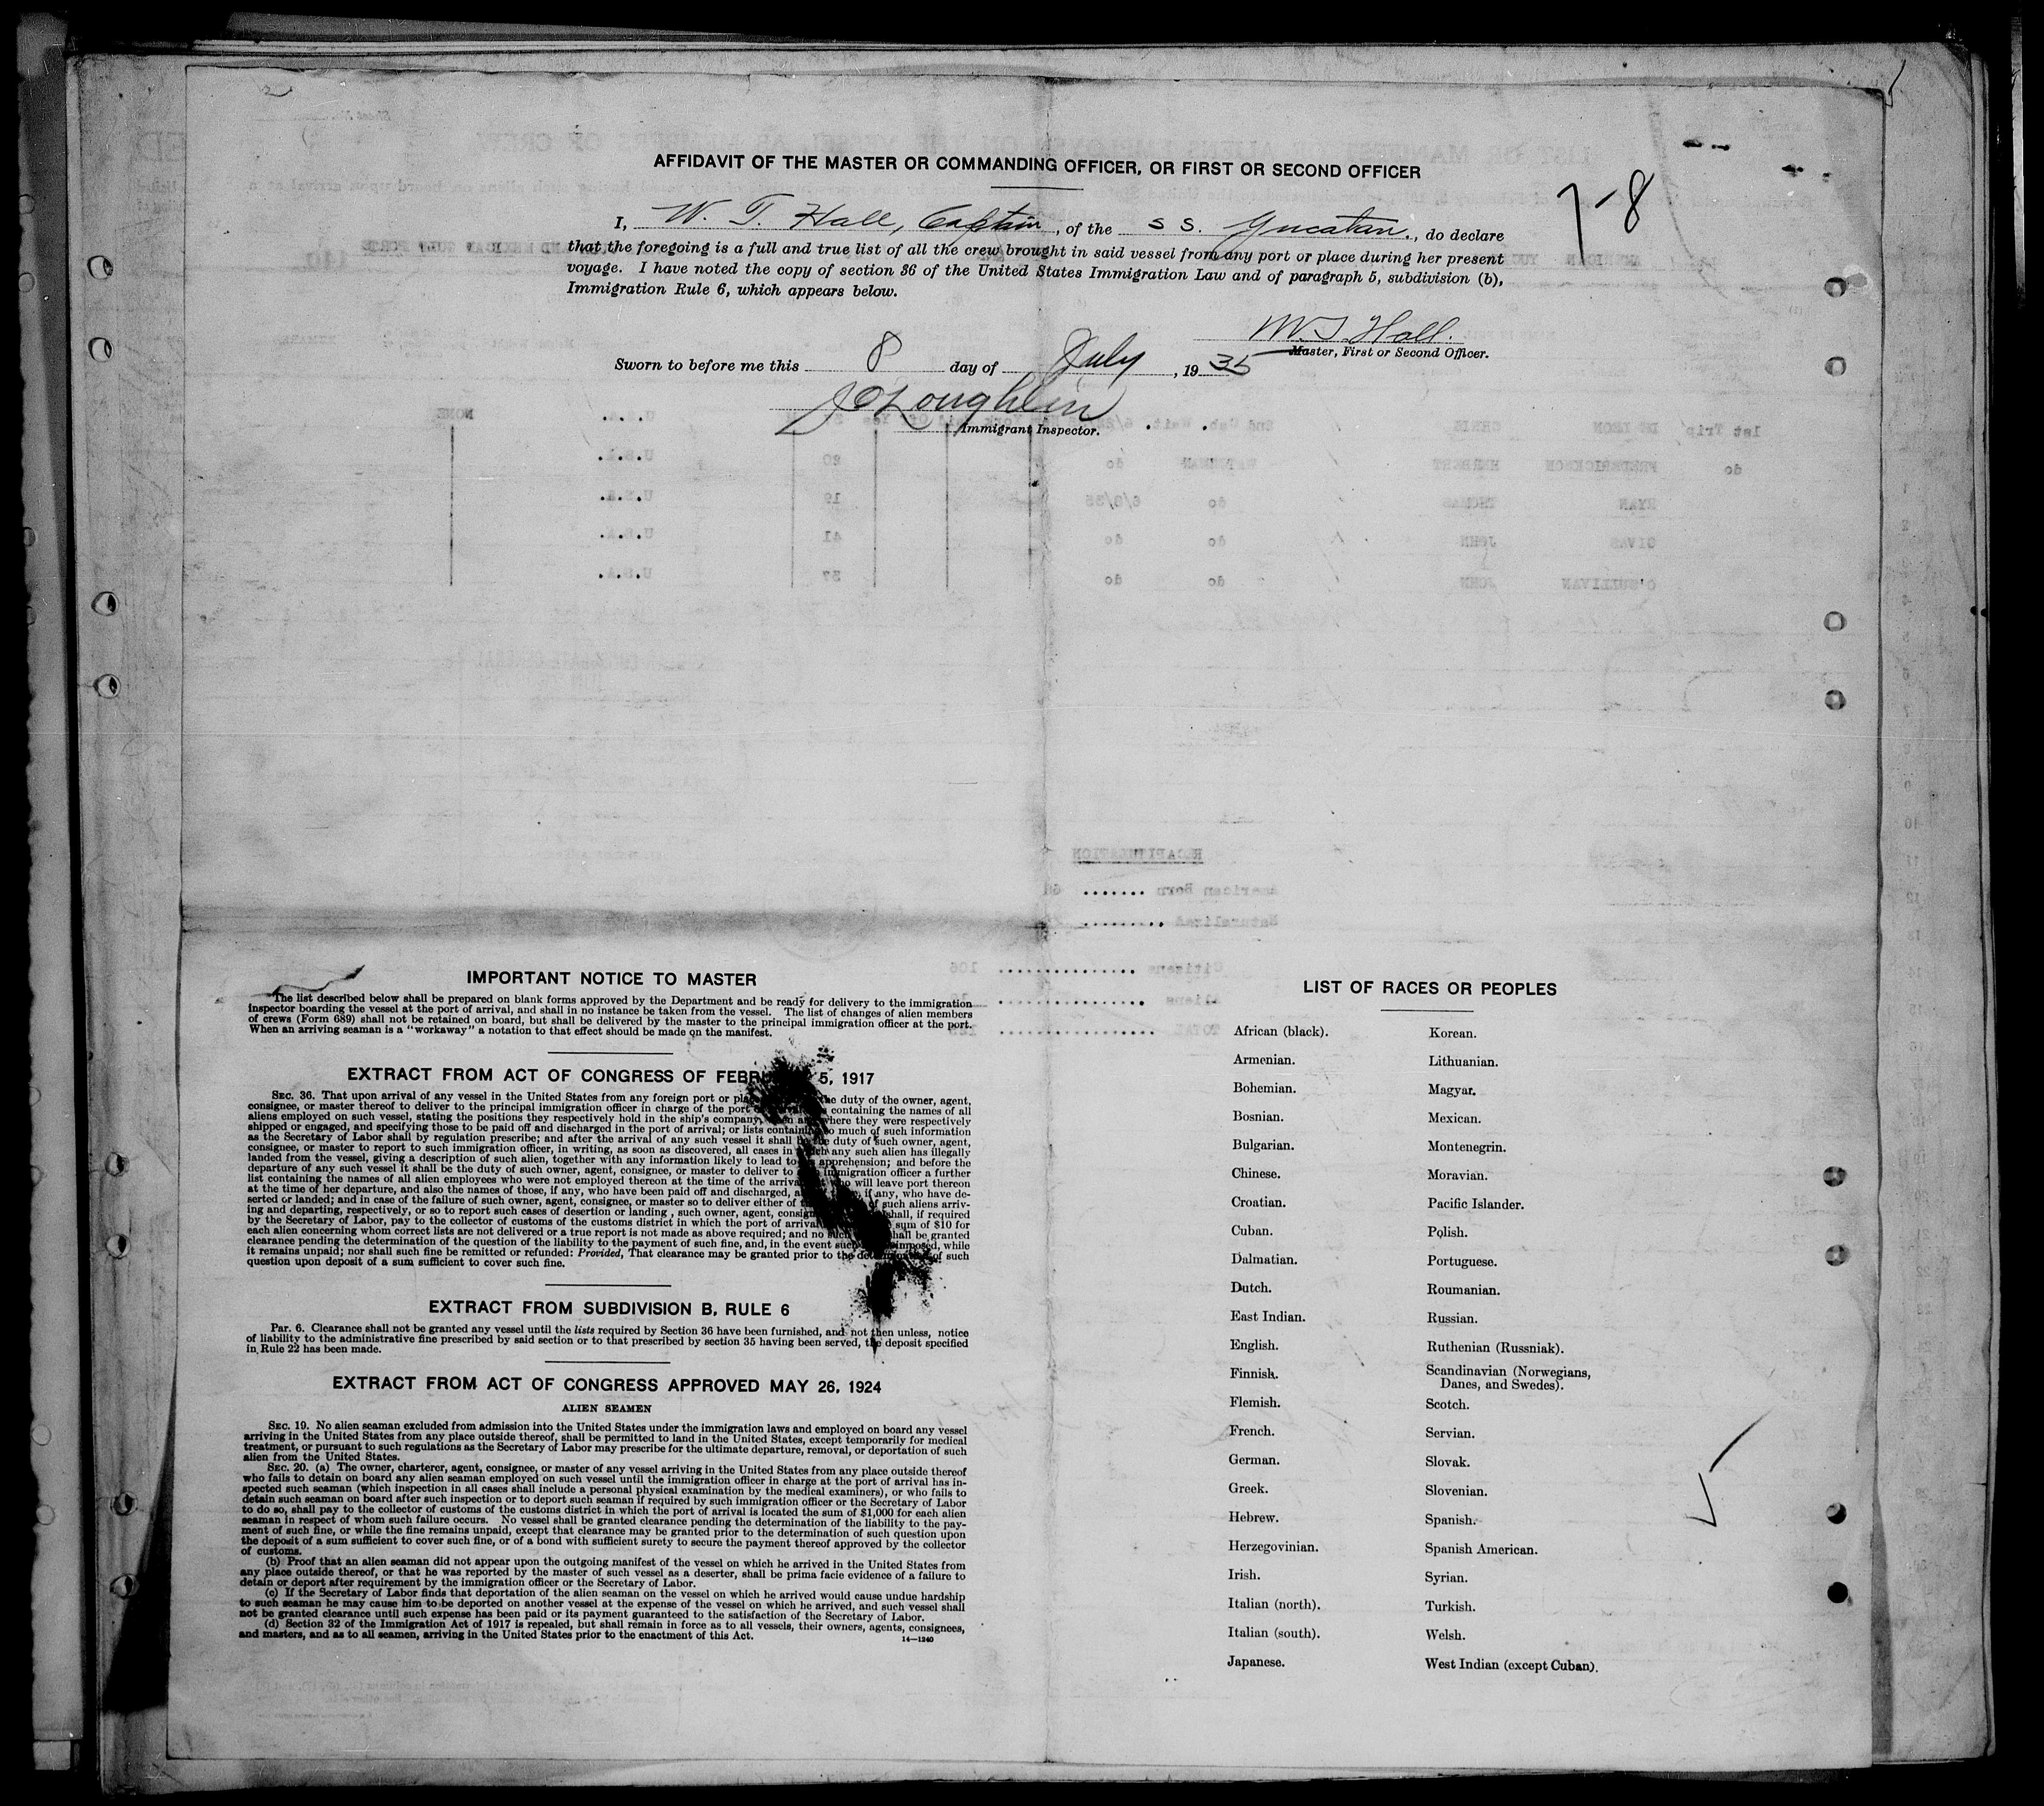 AFFIDAVIT OF THE MASTER OR COMMANDING OFFICER, OR FIRST OR SECOND OFFICER
7-8
I, W. T. Hall, Captain, of the S S. Yucatan., do declare
that the foregoing is a full and true list of all the crew brought in said vessel from any port or place during her present
voyage. I have noted the copy of section 36 of the United States Immigration Law and of paragraph 5, subdivision (b),
Immigration Rule 6, which appears below.
W. T. Hall.
Master, First or Second Officer.
Sworn to before me this 8 day of July, 1935
Immigrant Inspector.
IMPORTANT NOTICE TO MASTER
The list described below shall be prepared on blank forms approved by the Department and be ready for delivery to the immigration
inspector boarding the vessel at the port of arrival, and shall in no instance be taken from the vessel. The list of changes of alien members
of crews (Form 689) shall not be retained on board, but shall be delivered by the master to the principal immigration officer at the port.
When an arriving seaman is a "workaway" a notation to that effect should be made on the manifest.
EXTRACT FROM ACT OF CONGRESS OF 5, 1917
SEC. 36. That upon arrival of any vessel in the United States from any foreign port or the duty of the owner, agent,
consignee, or master thereof to deliver to the principal immigration officer in charge of the port containing the names of all
aliens employed on such vessel, stating the positions they respectively hold in the ship's company, where they were respectively
shipped or engaged, and specifying those to be paid off and discharged in the port of arrival; or lists so much of such information
as the Secretary of Labor shall by regulation prescribe; and after the arrival of any such vessel it shall duty of such owner, agent,
consignee, or master to report to such immigration officer, in writing, as soon as discovered, all cases in any such alien has illegally
landed from the vessel, giving a description of such alien, together with any information likely to lead to apprehension; and before the
departure of any such vessel it shall be the duty of such owner, agent, consignee, or master to deliver to immigration officer a further
list containing the names of all alien employees who were not employed thereon at the time of the who will leave port thereon
at the time of her departure, and also the names of those, if any, who have been paid off and discharged, if any, who have de-
serted or landed; and in case of the failure of such owner, agent, consignee, or master so to deliver either of such aliens arriv-
ing and departing, respectively, or so to report such cases of desertion or landing, such owner, agent, shall, if required
by the Secretary of Labor, pay to the collector of customs of the customs district in which the port of arrival sum of $10 for
each alien concerning whom correct lists are not delivered or a true report is not made as above required; and no such shall be granted
clearance pending the determination of the question of the liability to the payment of such fine, and, in the event such imposed, while
it remains unpaid; nor shall such fine be remitted or refunded: Provided, That clearance may be granted prior to the of such
question upon deposit of a sum sufficient to cover such fine.
EXTRACT FROM SUBDIVISION B, RULE 6
Par. 6. Clearance shall not be granted any vessel until the lists required by Section 36 have been furnished, and not then unless, notice
of liability to the administrative fine prescribed by said section or to that prescribed by section 35 having been served, the deposit specified
in Rule 22 has been made.
EXTRACT FROM ACT OF CONGRESS APPROVED MAY 26, 1924
ALIEN SEAMEN
SEC. 19. No alien seaman excluded from admission into the United States under the immigration laws and employed on board any vessel
arriving in the United States from any place outside thereof, shall be permitted to land in the United States, except temporarily for medical
treatment, or pursuant to such regulations as the Secretary of Labor may prescribe for the ultimate departure, removal, or deportation of such
alien from the United States.
SEC. 20. (a) The owner, charterer, agent, consignee, or master of any vessel arriving in the United States from any place outside thereof
who fails to detain on board any alien seaman employed on such vessel until the immigration officer in charge at the port of arrival has in-
spected such seaman (which inspection in all cases shall include a personal physical examination by the medical examiners), or who fails to
detain such seaman on board after such inspection or to deport such seaman if required by such immigration officer or the Secretary of Labor
to do so, shall pay to the collector of customs of the customs district in which the port of arrival is located the sum of $1,000 for each alien
seaman in respect of whom such failure occurs. No vessel shall be granted clearance pending the determination of the liability to the pay-
ment of such fine, or while the fine remains unpaid, except that clearance may be granted prior to the determination of such question upon
the deposit of a sum sufficient to cover such fine, or of a bond with sufficient surety to secure the payment thereof approved by the collector
of customs.
(b) Proof that an alien seaman did not appear upon the outgoing manifest of the vessel on which he arrived in the United States from
any place outside thereof, or that he was reported by the master of such vessel as a deserter, shall be prima facie evidence of a failure to
detain or deport after requirement by the immigration officer or the Secretary of Labor.
(c) If the Secretary of Labor finds that deportation of the alien seaman on the vessel on which he arrived would cause undue hardship
to such seaman he may cause him to be deported on another vessel at the expense of the vessel on which he arrived, and such vessel shall
not be granted clearance until such expense has been paid or its payment guaranteed to the satisfaction of the Secretary of Labor.
(d) Section 32 of the Immigration Act of 1917 is repealed, but shall remain in force as to all vessels, their owners, agents, consignees,
and masters, and as to all seamen, arriving in the United States prior to the enactment of this Act.
14—1240
LIST OF RACES OR PEOPLES
African (black).
Armenian.
Bohemian.
Bosnian.
Bulgarian.
Chinese.
Croatian.
Cuban.
Dalmatian.
Dutch.
East Indian.
English.
Finnish.
Flemish.
French.
German.
Greek.
Hebrew.
Herzegovinian.
Irish.
Italian (north).
Italian (south).
Japanese.
Korean.
Lithuanian.
Magyar.
Mexican.
Montenegrin.
Moravian.
Pacific Islander.
Polish.
Portuguese.
Roumanian.
Russian.
Ruthenian (Russniak).
Scandinavian (Norwegians,
Danes, and Swedes).
Scotch.
Servian.
Slovak.
Slovenian.
Spanish.
Spanish American.
Syrian.
Turkish.
Welsh.
West Indian (except Cuban).